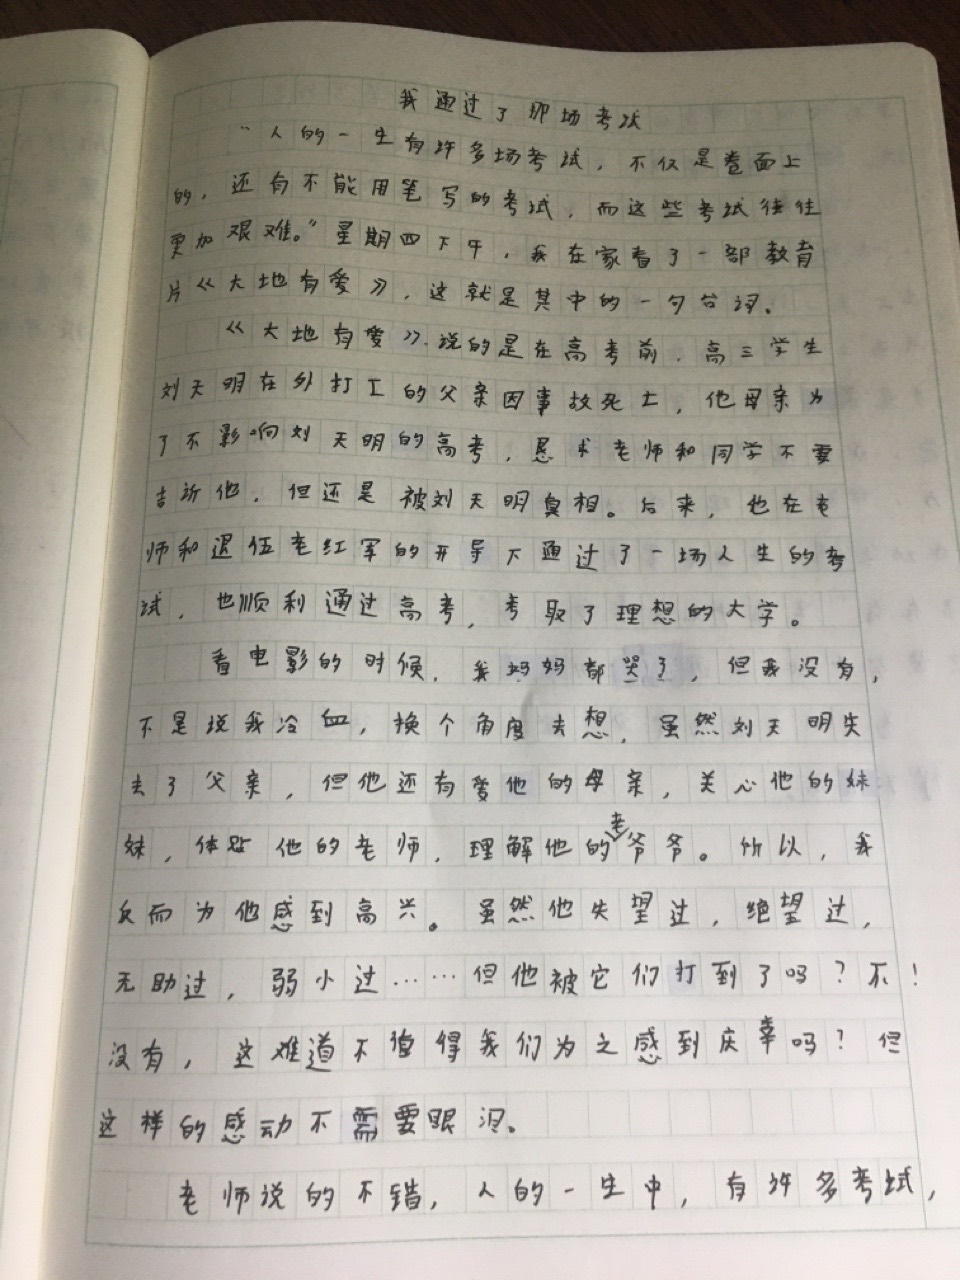 我通过了那场考试
“人的一生有许多场考试，不仅是卷面上
的，还有不能用笔写的考试，而这些考试往往
更加艰难。”星期四下午，我在家看了一部教育
片《大地有爱》，这就是其中的一句台词。
《大地有爱》说的是在高考前，高三学生
刘天明在外打工的父亲因事故死亡，他母亲为
了不影响刘天明的高考，恳求老师和同学不要
告诉他，但还是被刘天明真相。后来，他在老
师和退伍老红军的开导下通过了一场人生的考
试，也顺利通过高考，考取了理想的大学。
看电影的时候，我妈妈都哭了，但我没有，
不是说我冷血，换个角度去想，虽然刘天明失
去了父亲，但他还有爱他的母亲，关心他的妹
妹，体贴他的老师，理解他的老爷爷。所以，我
反而为他感到高兴。虽然他失望过，绝望过，
无助过，弱小过……但他被它们打到了吗？不！
没有，这难道不值得我们为之感到庆幸吗？但
这样的感动不需要眼泪。
老师说的不错，人的一生中，有许多考试，